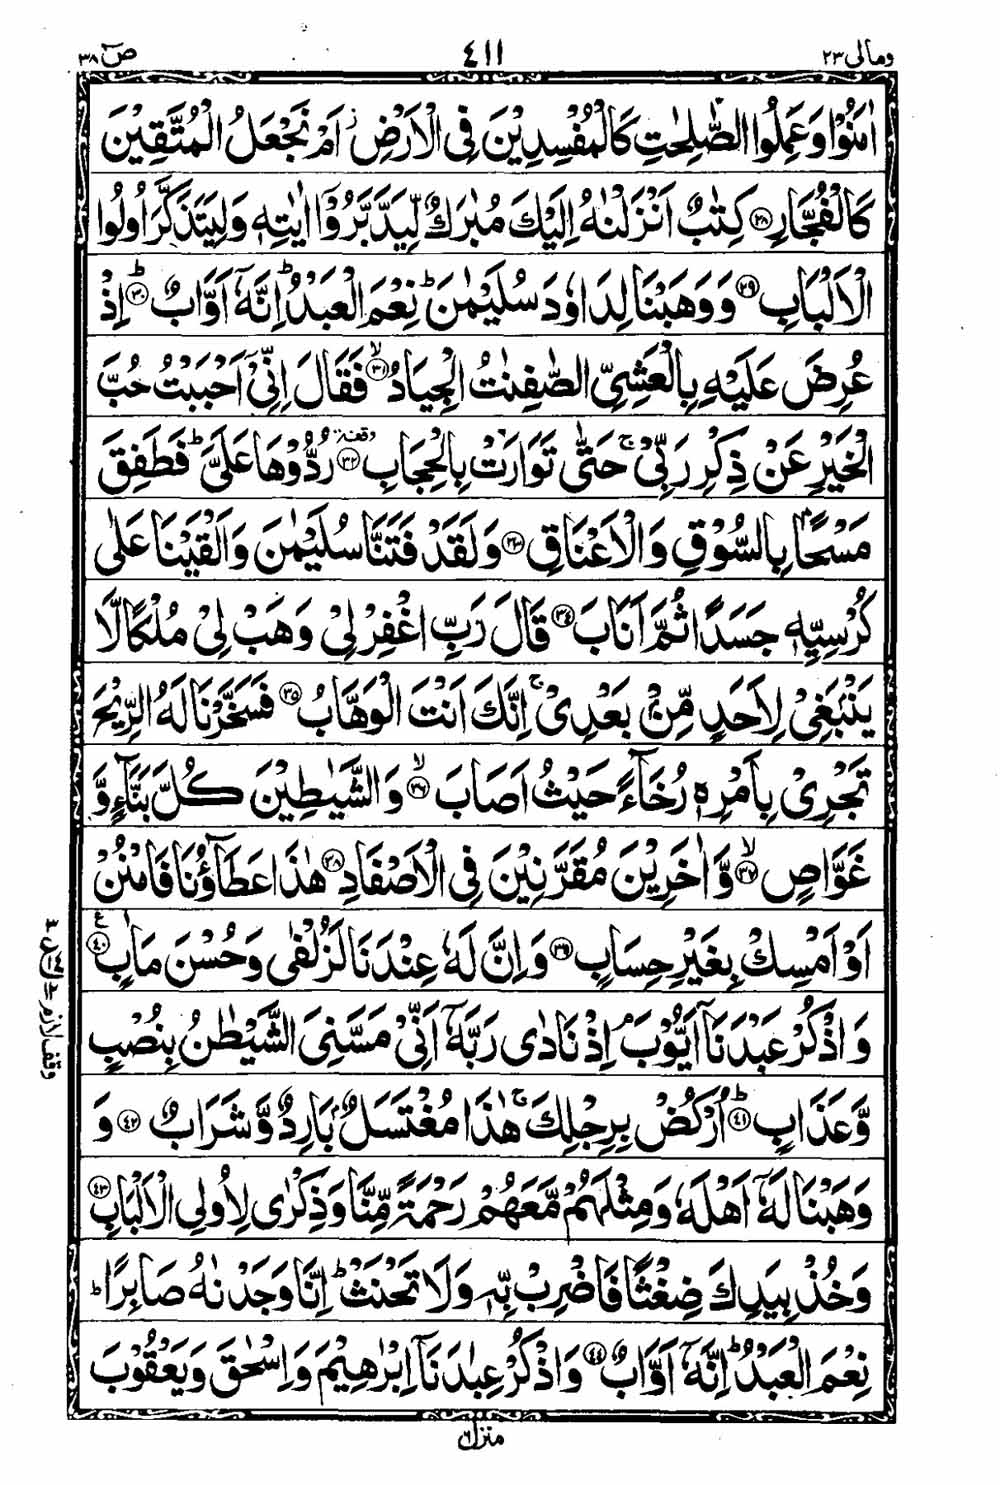 ومالی ٢٣
٤١١
صٓ ٣٨
اٰمَنُوْا وَعَمِلُوا الصّٰلِحٰتِ كَالْمُفْسِدِيْنَ فِى الْاَرْضِ ز اَمْ نَجْعَلُ الْمُتَّقِيْنَ
كَالْفُجَّارِ ﴿٢٨﴾ كِتٰبٌ اَنْزَلْنٰهُ اِلَيْكَ مُبٰرَكٌ لِّيَدَّبَّرُوْٓا اٰيٰتِهٖ وَلِيَتَذَكَّرَ اُولُوا
الْاَلْبَابِ ﴿٢٩﴾ وَوَهَبْنَا لِدَاوٗدَ سُلَيْمٰنَ ؕ نِعْمَ الْعَبْدُ ؕ اِنَّهٗٓ اَوَّابٌ ﴿٣٠﴾ ؕ اِذْ
عُرِضَ عَلَيْهِ بِالْعَشِىِّ الصّٰفِنٰتُ الْجِيَادُ ﴿٣١﴾ ۙ فَقَالَ اِنِّىْٓ اَحْبَبْتُ حُبَّ
الْخَيْرِ عَنْ ذِكْرِ رَبِّىْ ۚ حَتّٰى تَوَارَتْ بِالْحِجَابِ ﴿٣٢﴾ وقفة رُدُّوْهَا عَلَىَّ ؕ فَطَفِقَ
مَسْحًۢا بِالسُّوْقِ وَالْاَعْنَاقِ ﴿٣٣﴾ وَلَقَدْ فَتَنَّا سُلَيْمٰنَ وَاَلْقَيْنَا عَلٰى
كُرْسِيِّهٖ جَسَدًا ثُمَّ اَنَابَ ﴿٣٤﴾ قَالَ رَبِّ اغْفِرْ لِىْ وَهَبْ لِىْ مُلْكًا لَّا
يَنْۢبَغِىْ لِاَحَدٍ مِّنْۢ بَعْدِىْ ۚ اِنَّكَ اَنْتَ الْوَهَّابُ ﴿٣٥﴾ فَسَخَّرْنَا لَهُ الرِّيْحَ
تَجْرِىْ بِاَمْرِهٖ رُخَآءً حَيْثُ اَصَابَ ﴿٣٦﴾ ۙ وَالشَّيٰطِيْنَ كُلَّ بَنَّآءٍ وَّ
غَوَّاصٍ ﴿٣٧﴾ ۙ وَّاٰخَرِيْنَ مُقَرَّنِيْنَ فِى الْاَصْفَادِ ﴿٣٨﴾ هٰذَا عَطَآؤُنَا فَامْنُنْ
اَوْ اَمْسِكْ بِغَيْرِ حِسَابٍ ﴿٣٩﴾ وَاِنَّ لَهٗ عِنْدَنَا لَزُلْفٰى وَحُسْنَ مَاٰبٍ ﴿٤٠﴾ ع
وَاذْكُرْ عَبْدَنَآ اَيُّوْبَ ۘ اِذْ نَادٰى رَبَّهٗٓ اَنِّىْ مَسَّنِىَ الشَّيْطٰنُ بِنُصْبٍ
وَّعَذَابٍ ﴿٤١﴾ ؕ اُرْكُضْ بِرِجْلِكَ ۚ هٰذَا مُغْتَسَلٌۢ بَارِدٌ وَّشَرَابٌ ﴿٤٢﴾ وَ
وَهَبْنَا لَهٗٓ اَهْلَهٗ وَمِثْلَهُمْ مَّعَهُمْ رَحْمَةً مِّنَّا وَذِكْرٰى لِاُولِى الْاَلْبَابِ ﴿٤٣﴾
وَخُذْ بِيَدِكَ ضِغْثًا فَاضْرِبْ بِّهٖ وَلَا تَحْنَثْ ؕ اِنَّا وَجَدْنٰهُ صَابِرًا ؕ
نِعْمَ الْعَبْدُ ؕ اِنَّهٗٓ اَوَّابٌ ﴿٤٤﴾ وَاذْكُرْ عِبٰدَنَآ اِبْرٰهِيْمَ وَاِسْحٰقَ وَيَعْقُوْبَ
منزل ٦